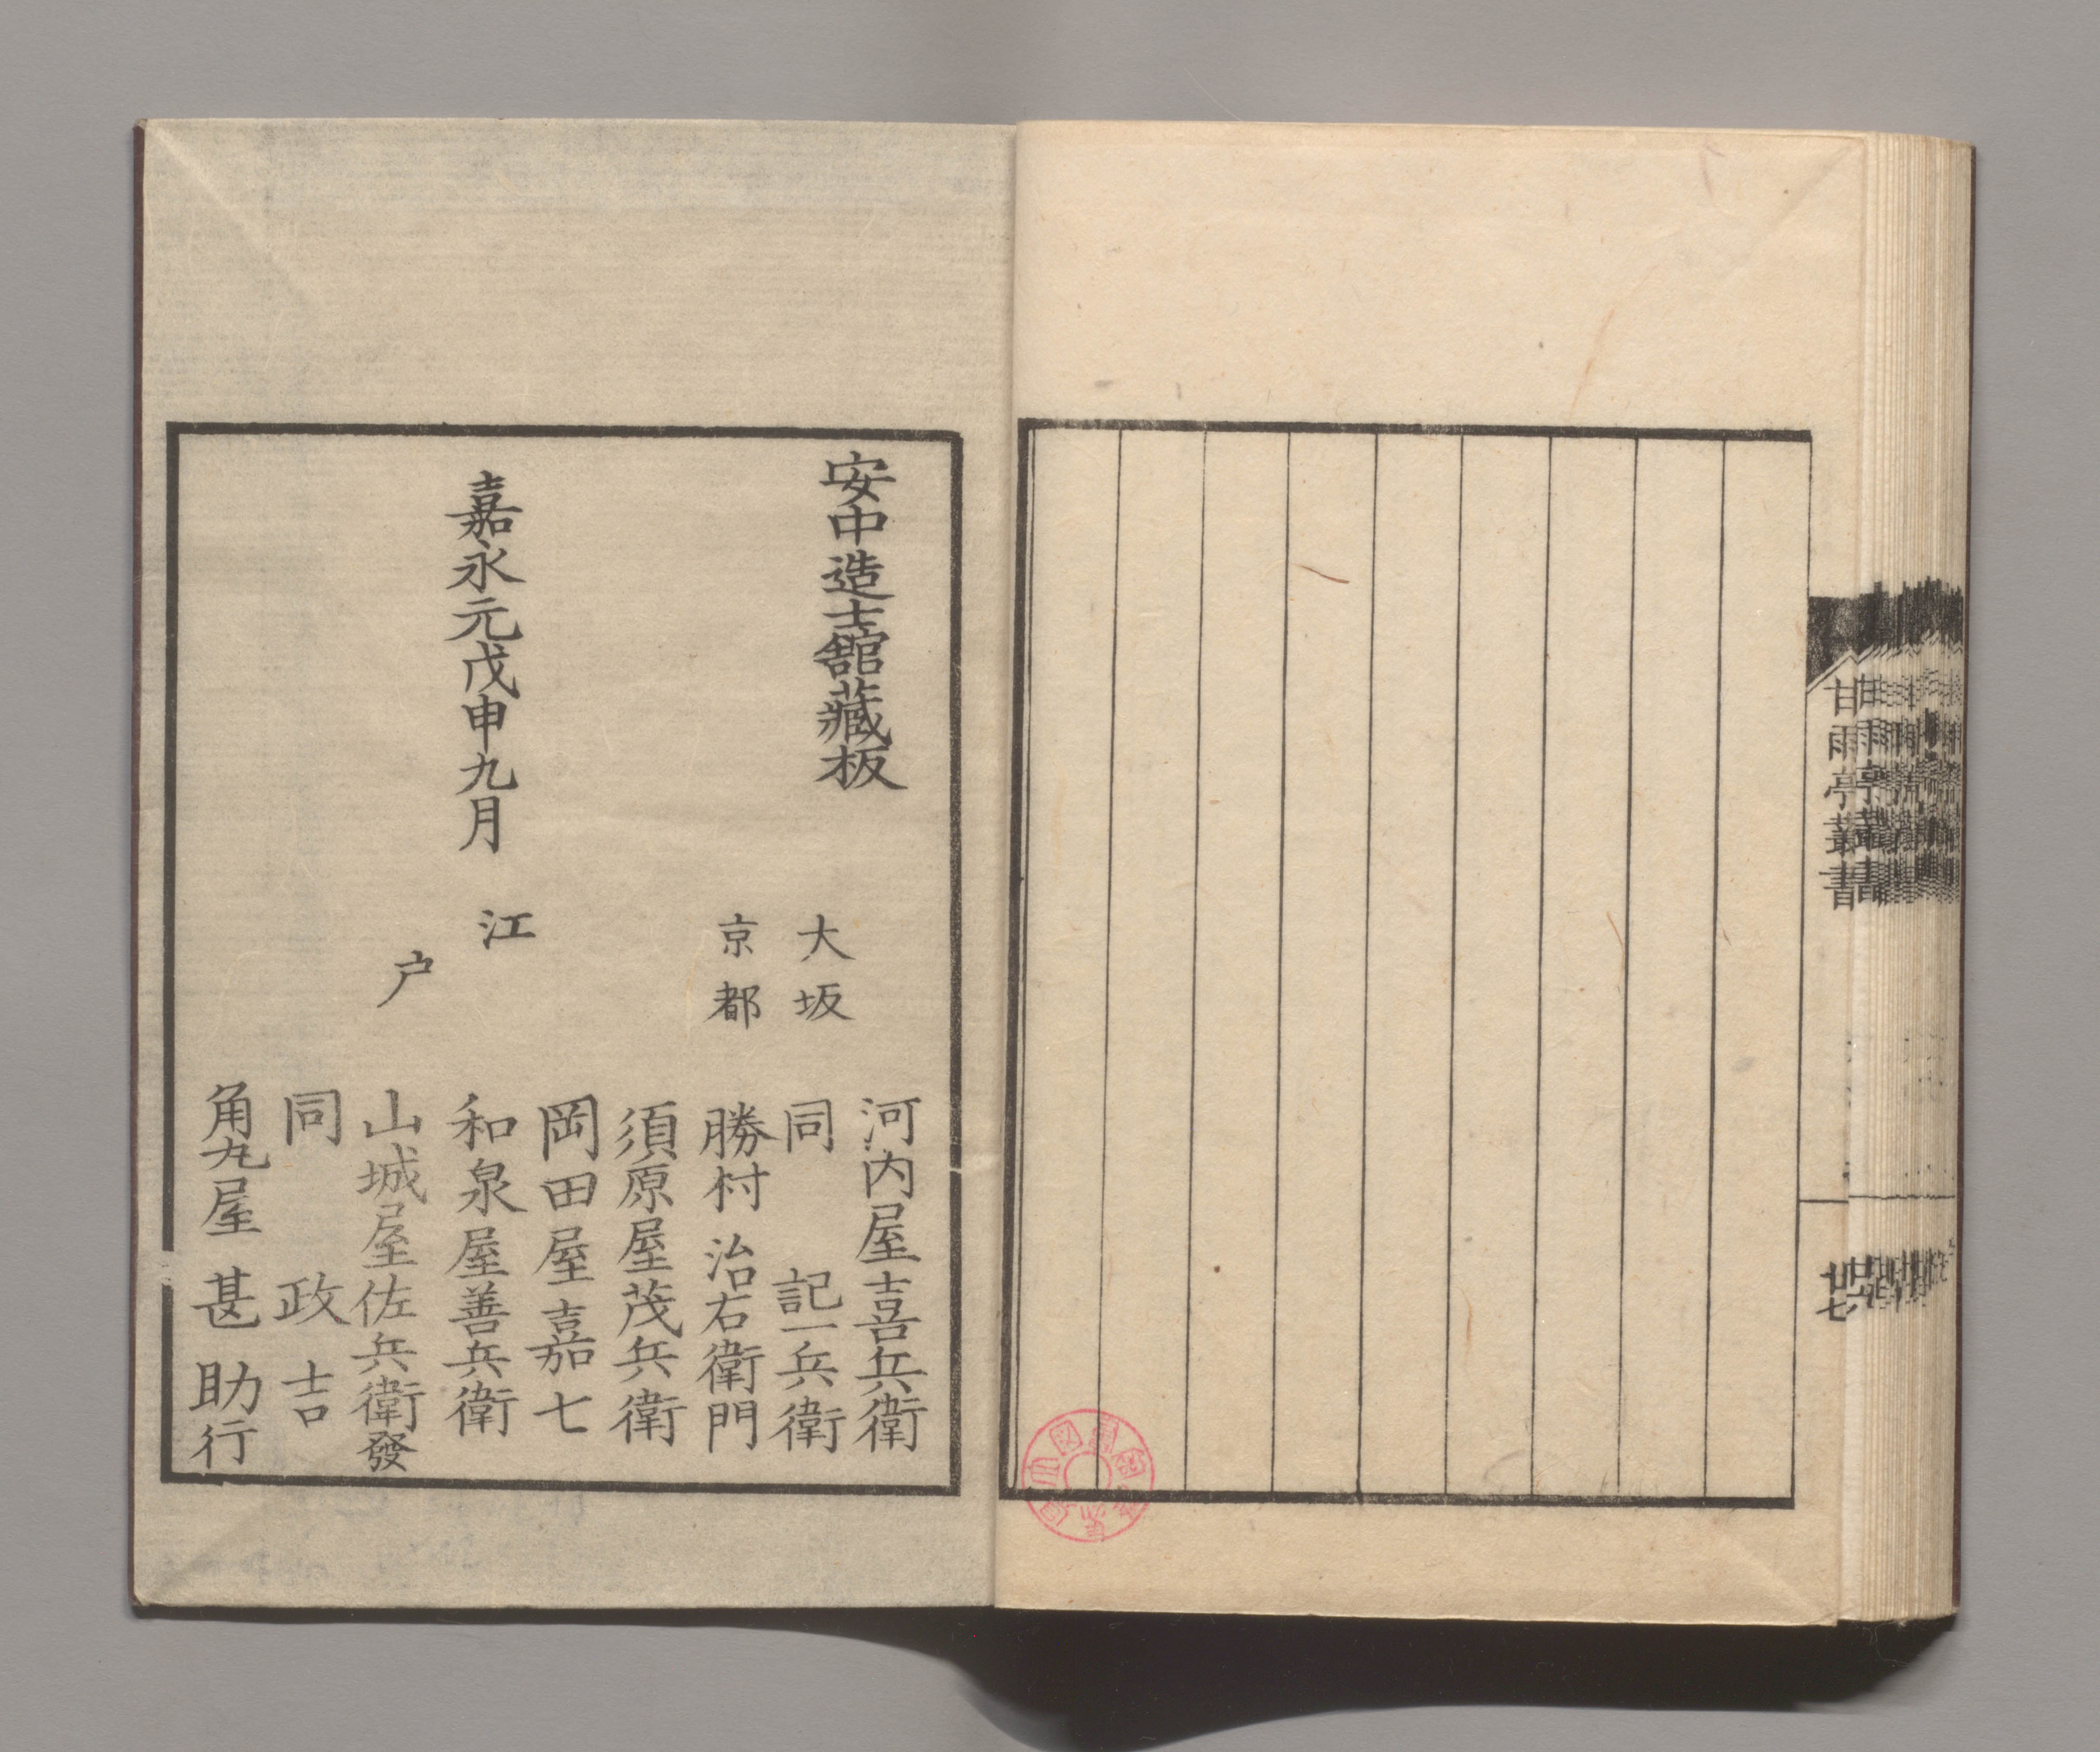 甘雨亭叢書
廿七
安中造士舘藏板
嘉永元戊申九月
大坂
河内屋喜兵衛
同 記一兵衛
京都
勝村治右衛門
江户
須原屋茂兵衛
岡田屋嘉七
和泉屋善兵衛
山城屋佐兵衛發
同 政吉
角丸屋甚助行